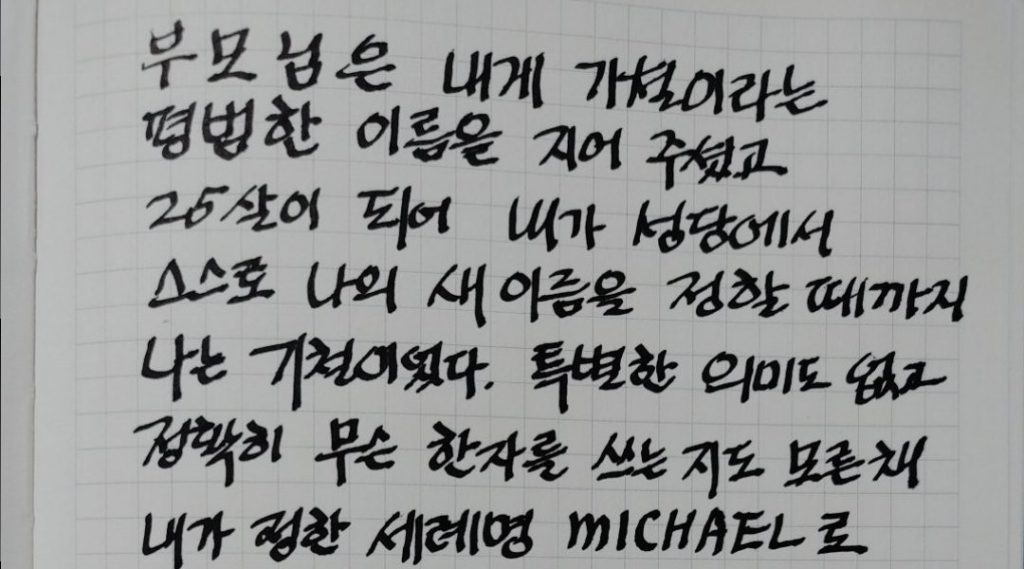 부모님은 내게 기철이라는
평범한 이름을 지어 주셨고
25살이 되어 내가 성당에서
스스로 나의 새 이름을 정할 때까지
나는 기철이었다. 특별한 의미도 없고
정확히 무슨 한자를 쓰는 지도 모른 채
내가 정한 세례명 MICHAEL로